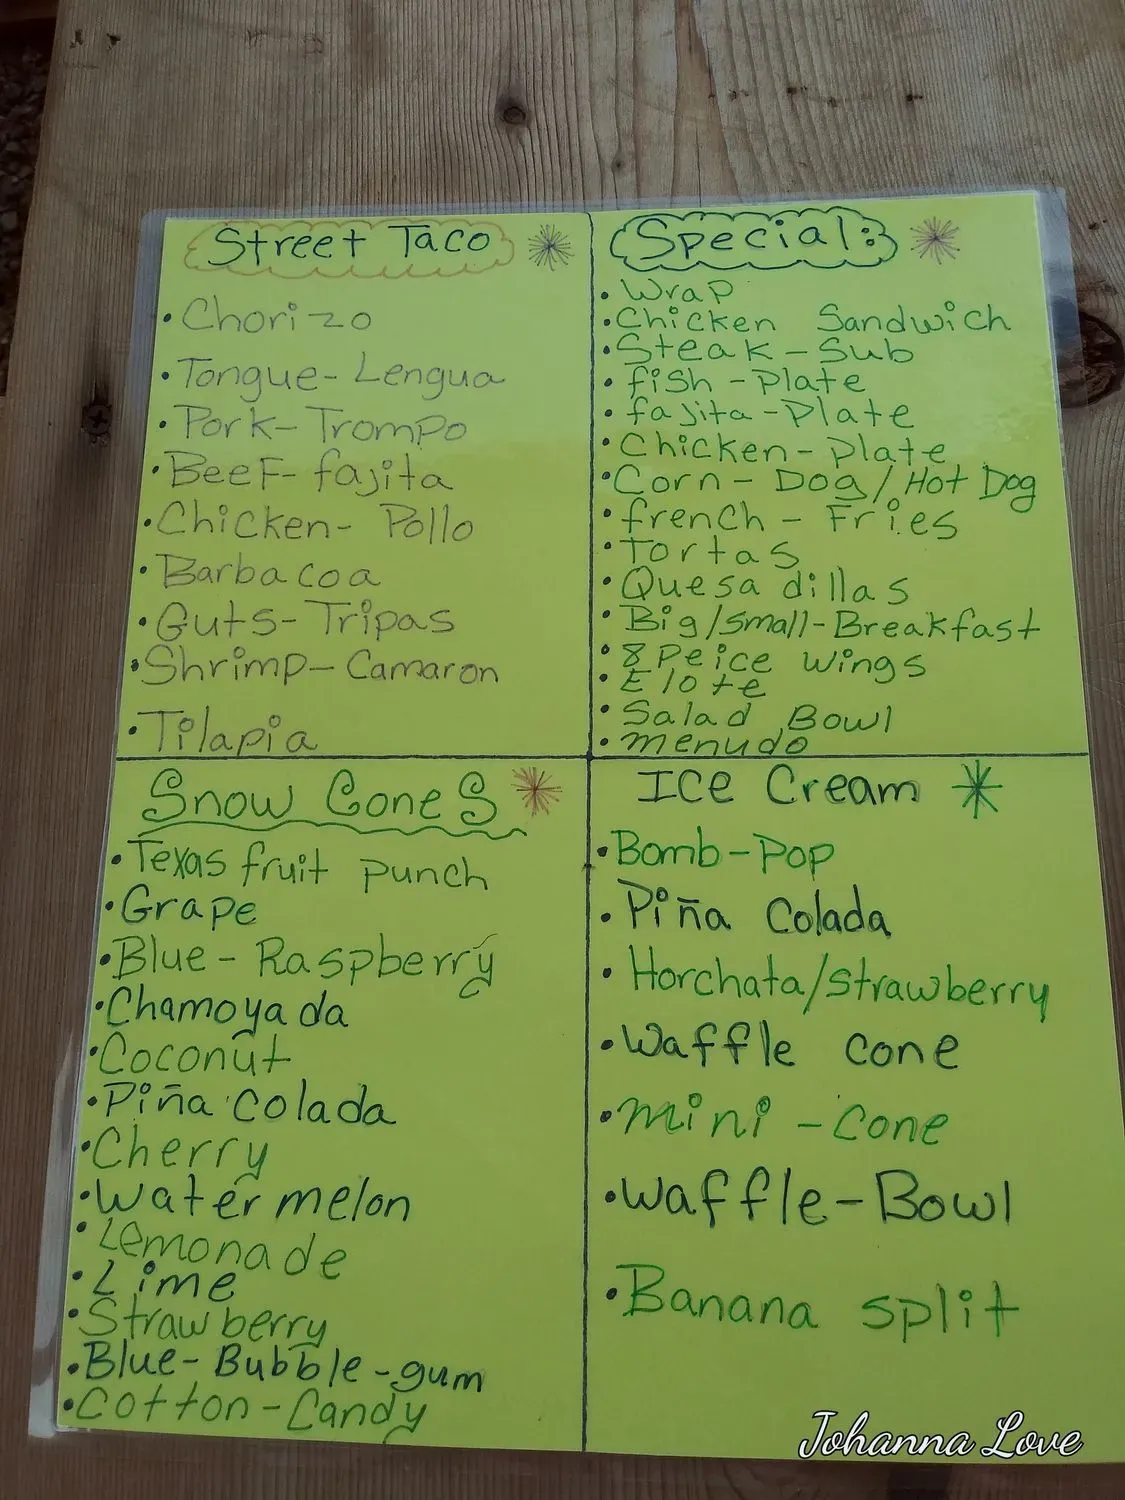 Street Taco
• Chorizo
• Tongue- Lengua
• Pork- Trompo
• Beef- fajita
• Chicken- Pollo
• Barbacoa
• Guts- Tripas
• Shrimp- Camaron
• Tilapia
Special:
• Wrap
• Chicken Sandwich
• Steak-Sub
• fish-Plate
• fajita-Plate
• Chicken-Plate
• Corn-Dog/Hot Dog
• french-Fries
• Tortas
• Quesadillas
• Big/small-Breakfast
• 8 Peice wings
• Elote
• Salad Bowl
• menudo
Snow Cones
• Texas fruit punch
• Grape
• Blue-Raspberry
• Chamoyada
• Coconut
• Piña Colada
• Cherry
• Watermelon
• Lemonade
• Lime
• Strawberry
• Blue-Bubble-gum
• Cotton-Candy
ICE Cream
• Bomb-Pop
• Piña Colada
• Horchata/strawberry
• Waffle cone
• mini-cone
• Waffle-Bowl
• Banana split
Johanna Love